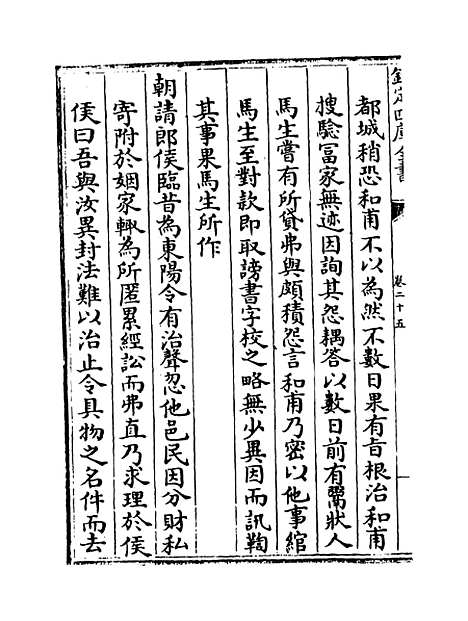 欽定四庫全書
卷二十五
都城稍恐和甫不以為然不數日果有旨根治和甫
搜驗冨家無迹因詢其怨耦答以數日前有鬻狀人
馬生嘗有所貸弗與頗積怨言和甫乃密以他事綰
馬生至對款即取謗書字校之略無少異因而訊鞫
其事果馬生所作
朝請郎侯臨昔為東陽令有治聲忽他邑民因分財私
寄附於姻家輒為所匿累經訟而弗直乃求理於侯
侯曰吾與汝異封法難以治止令具物之名件而去